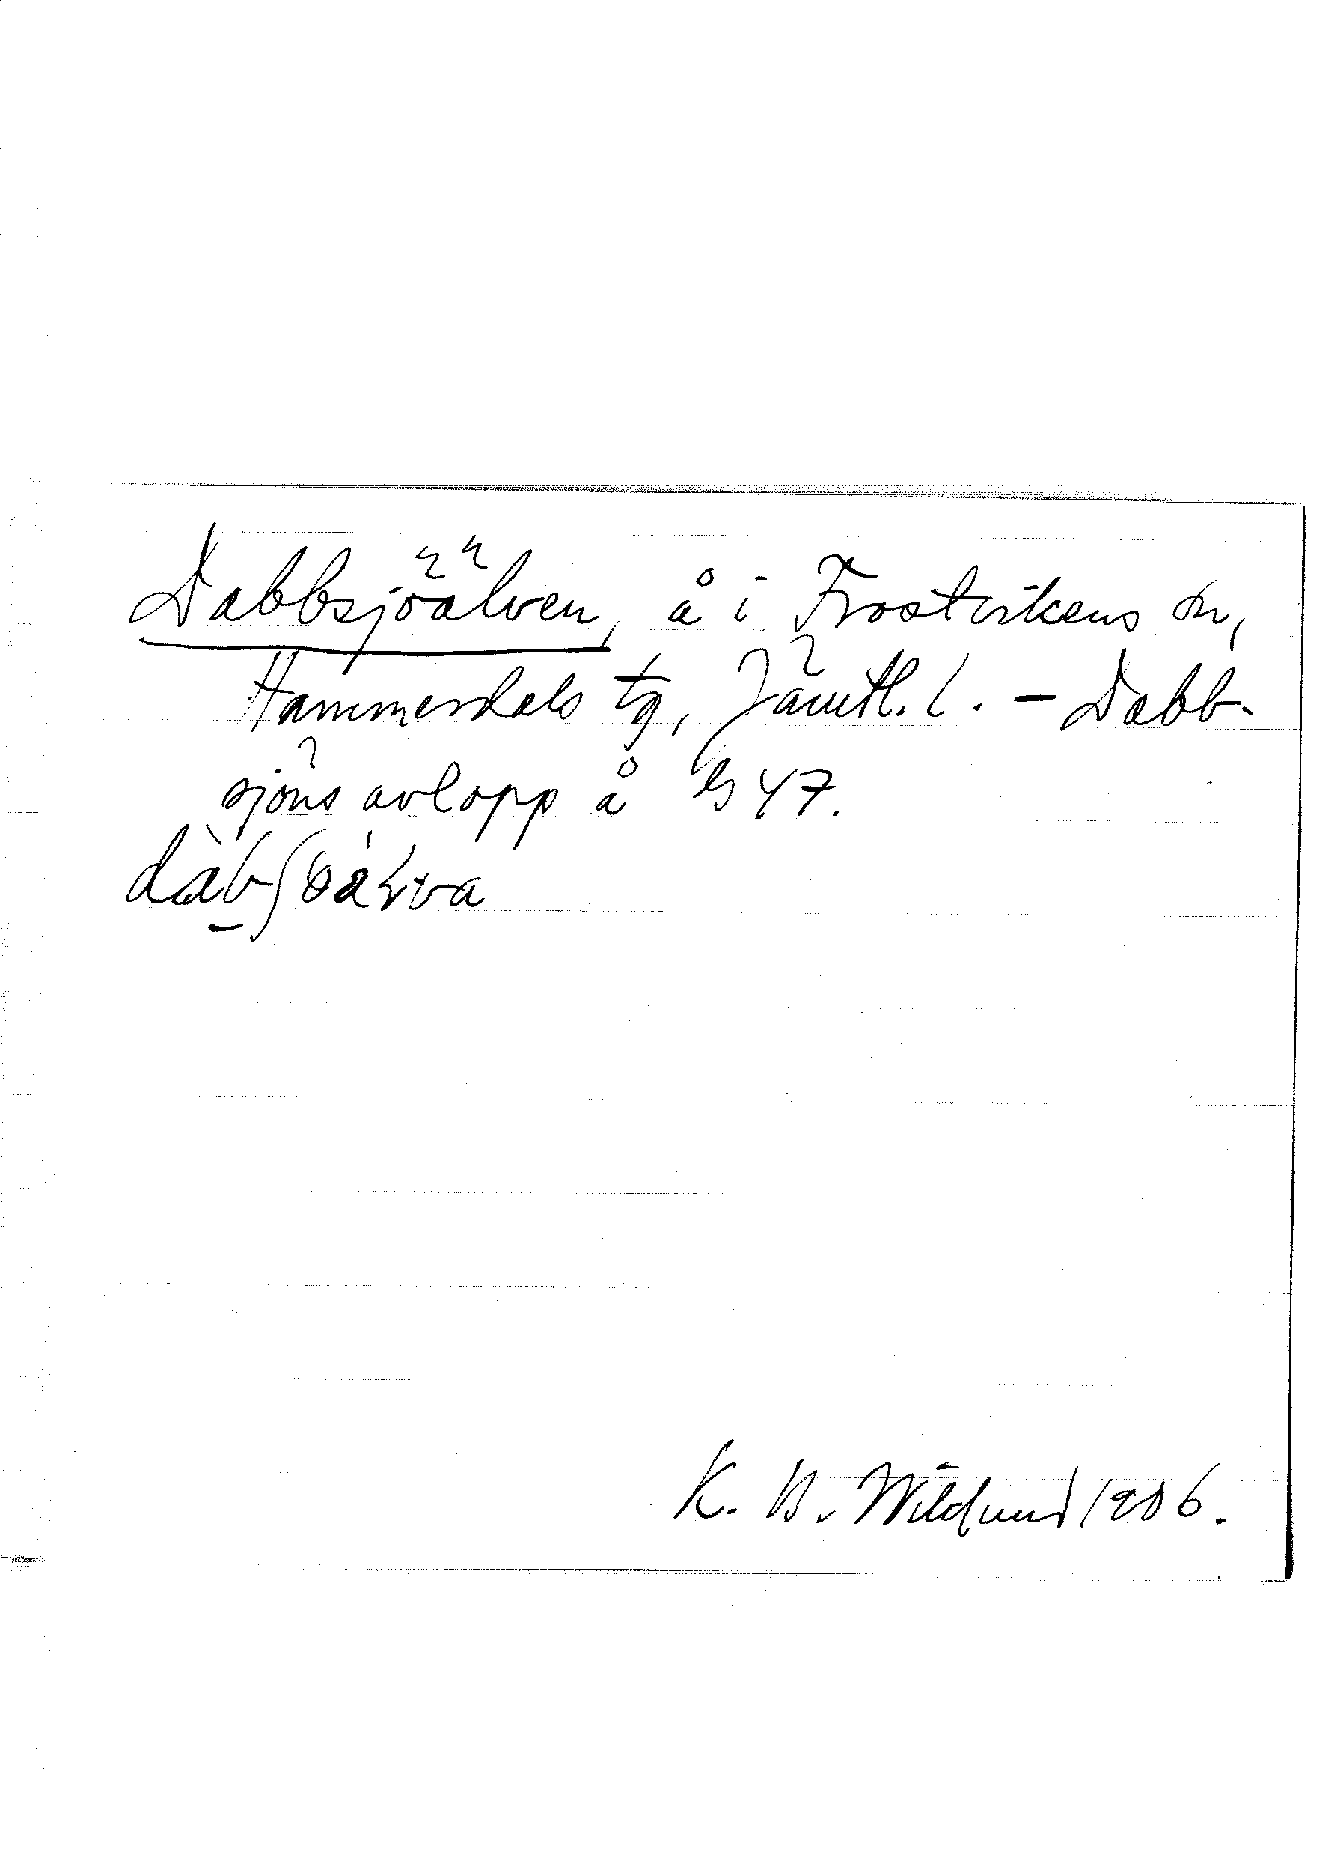 Dabbsjöälven, å i Frostvikens sn,
Hammerdals tg, Jämtl. l. – Dabb-
sjöns avlopp å bl 47.
K. B. Wiklund 1906.